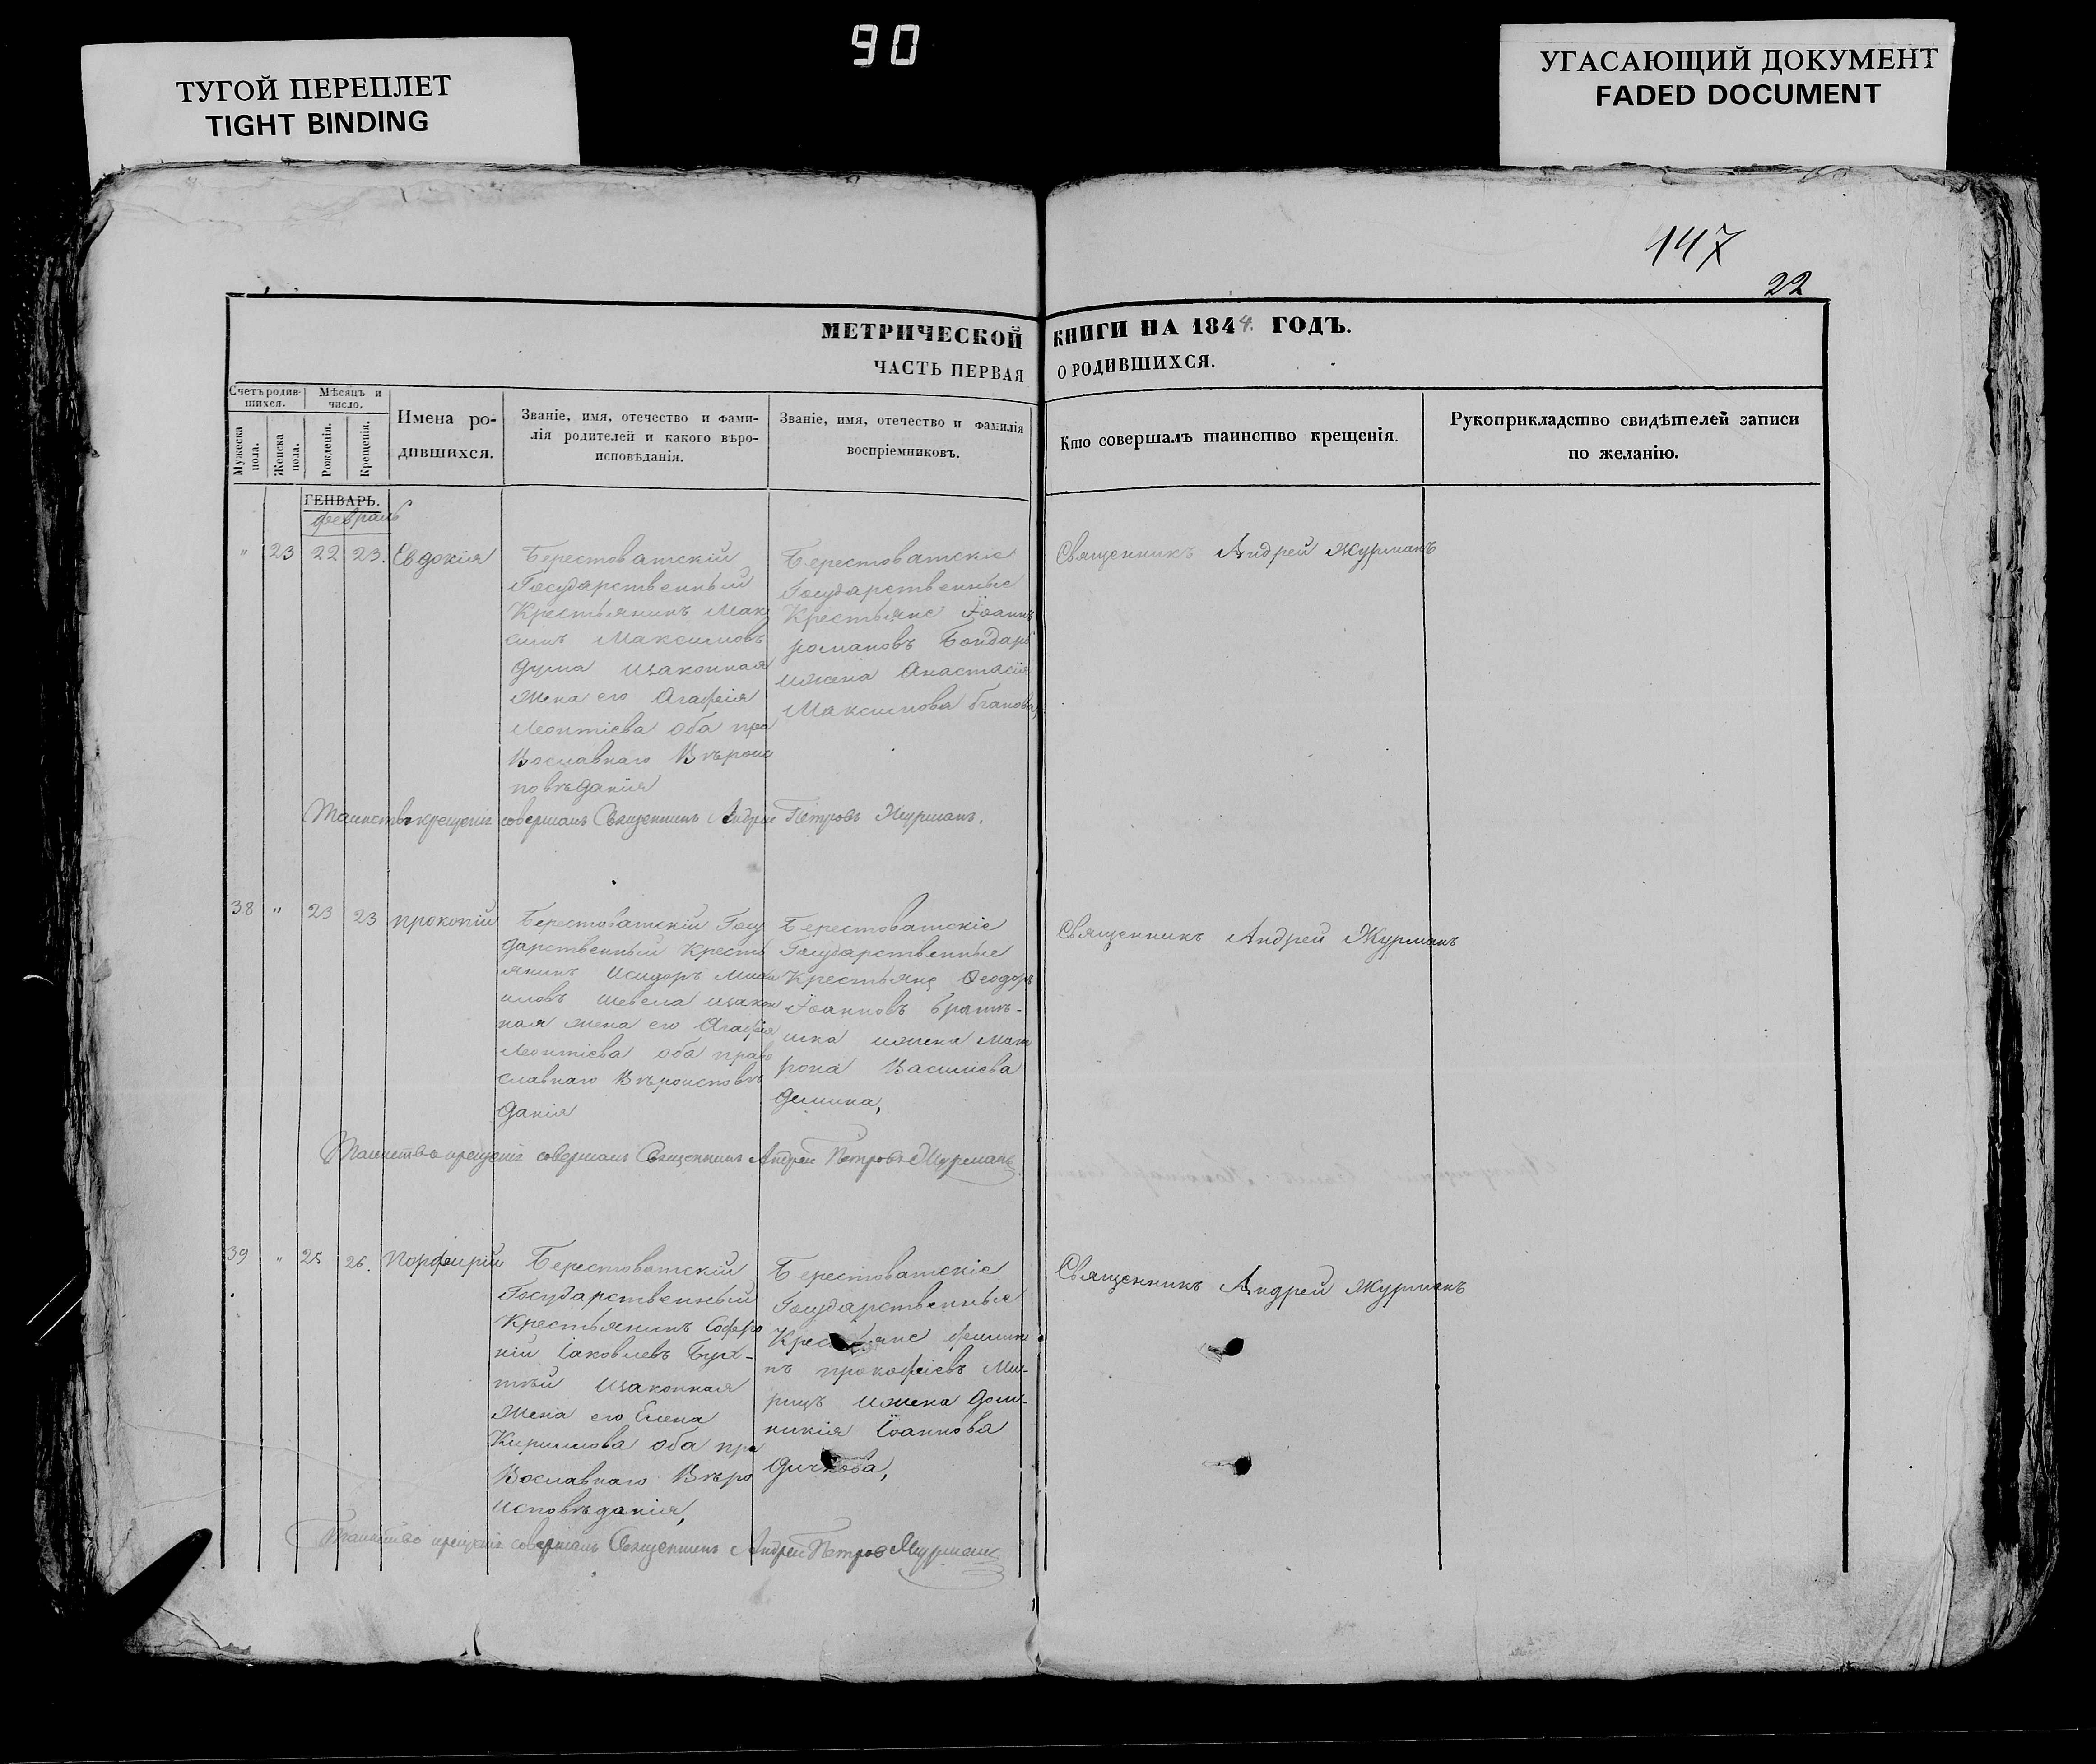 90
ТУГОЙ ПЕРЕПЛЕТ
TIGHT BINDING
УГАСАЮЩИЙ ДОКУМЕНТ
FADED DOCUMENT
147
22
МЕТРИЧЕСКОЙ КНИГИ НА 1844. ГОДЪ.
ЧАСТЬ ПЕРВАЯ О РОДИВШИХСЯ.
Счетъ родив-
шихся.
Мужеска пола.
Женска пола.
Мѣсяцъ и
число.
Рожденія.
Крещенія.
Имена ро-
дившихся.
Званіе, имя, отечество и фами-
лія родителей и какого вѣро-
исповѣданія.
Званіе, имя, отечество и фамилія
воспріемниковъ.
Кто совершалъ таинство крещенія.
Рукоприкладство свидѣтелей записи
по желанію.
ГЕНВАРЬ.
февраль
" 23 22 23. Евдокія
Берестоватскій
Государственный
Крестьянинъ Мак
симъ Максимовъ
Дума изаконная
Жена его Агафія
Леонтіева оба пра
Вославнаго Вѣроис
повѣданія
Берестоватскіе
Государственные
Крестьяне Іоаннъ
романовъ Бондарь
ижена Анастасія
Максимова
Священникъ Андрей Журманъ
Таинство крещенія совершалъ Священникъ Андрей Петровъ Журманъ.
38 " 23 23 прокопій
Берестоватскій Госу
дарственный Кресть
янинъ Исидоръ Миха
иловъ Шевела изакон
ная жена его Агафія
Леонтіева оба право
славнаго Вѣроисповѣ
данія
Берестоватскіе
Государственные
Крестьяне Ѳеодоръ
Іоанновъ
ижена Мат
рона Василіева
Демина,
Священникъ Андрей Журманъ
Таинство крещенія совершалъ Священникъ Андрей Петровъ Журманъ
39 " 25 26. Порфирій
Берестоватскій
Государственный
Крестьянинъ Софро
ній Іаковлевъ
изаконная
Жена его Елена
Кириллова оба пра
Вославнаго Вѣро
исповѣданія,
Берестоватскіе
Государственныя
Крестьяне филип
пъ прокофіевъ
ижена Дом-
никія Іоаннова
Священникъ Андрей Журманъ
Таинство крещенія совершалъ Священникъ Андрей Петровъ Журманъ